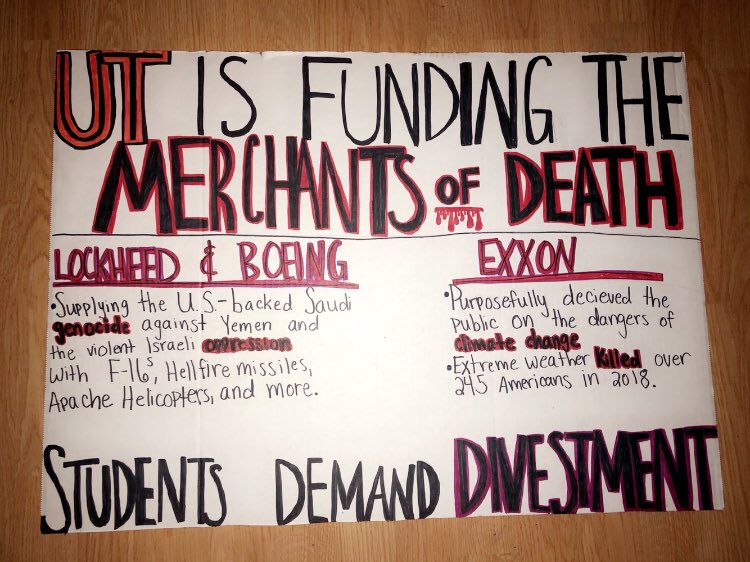 UT IS FUNDING THE
MERCHANTS OF DEATH
LOCKHEED & BOEING
•Supplying the U.S.-backed Saudi
genocide against Yemen and
the violent Israeli oppression
with F-16s, Hellfire missiles,
Apache Helicopters, and more.
EXXON
•Purposefully decieved the
public on the dangers of
climate change
•Extreme weather killed over
245 Americans in 2018.
STUDENTS DEMAND DIVESTMENT